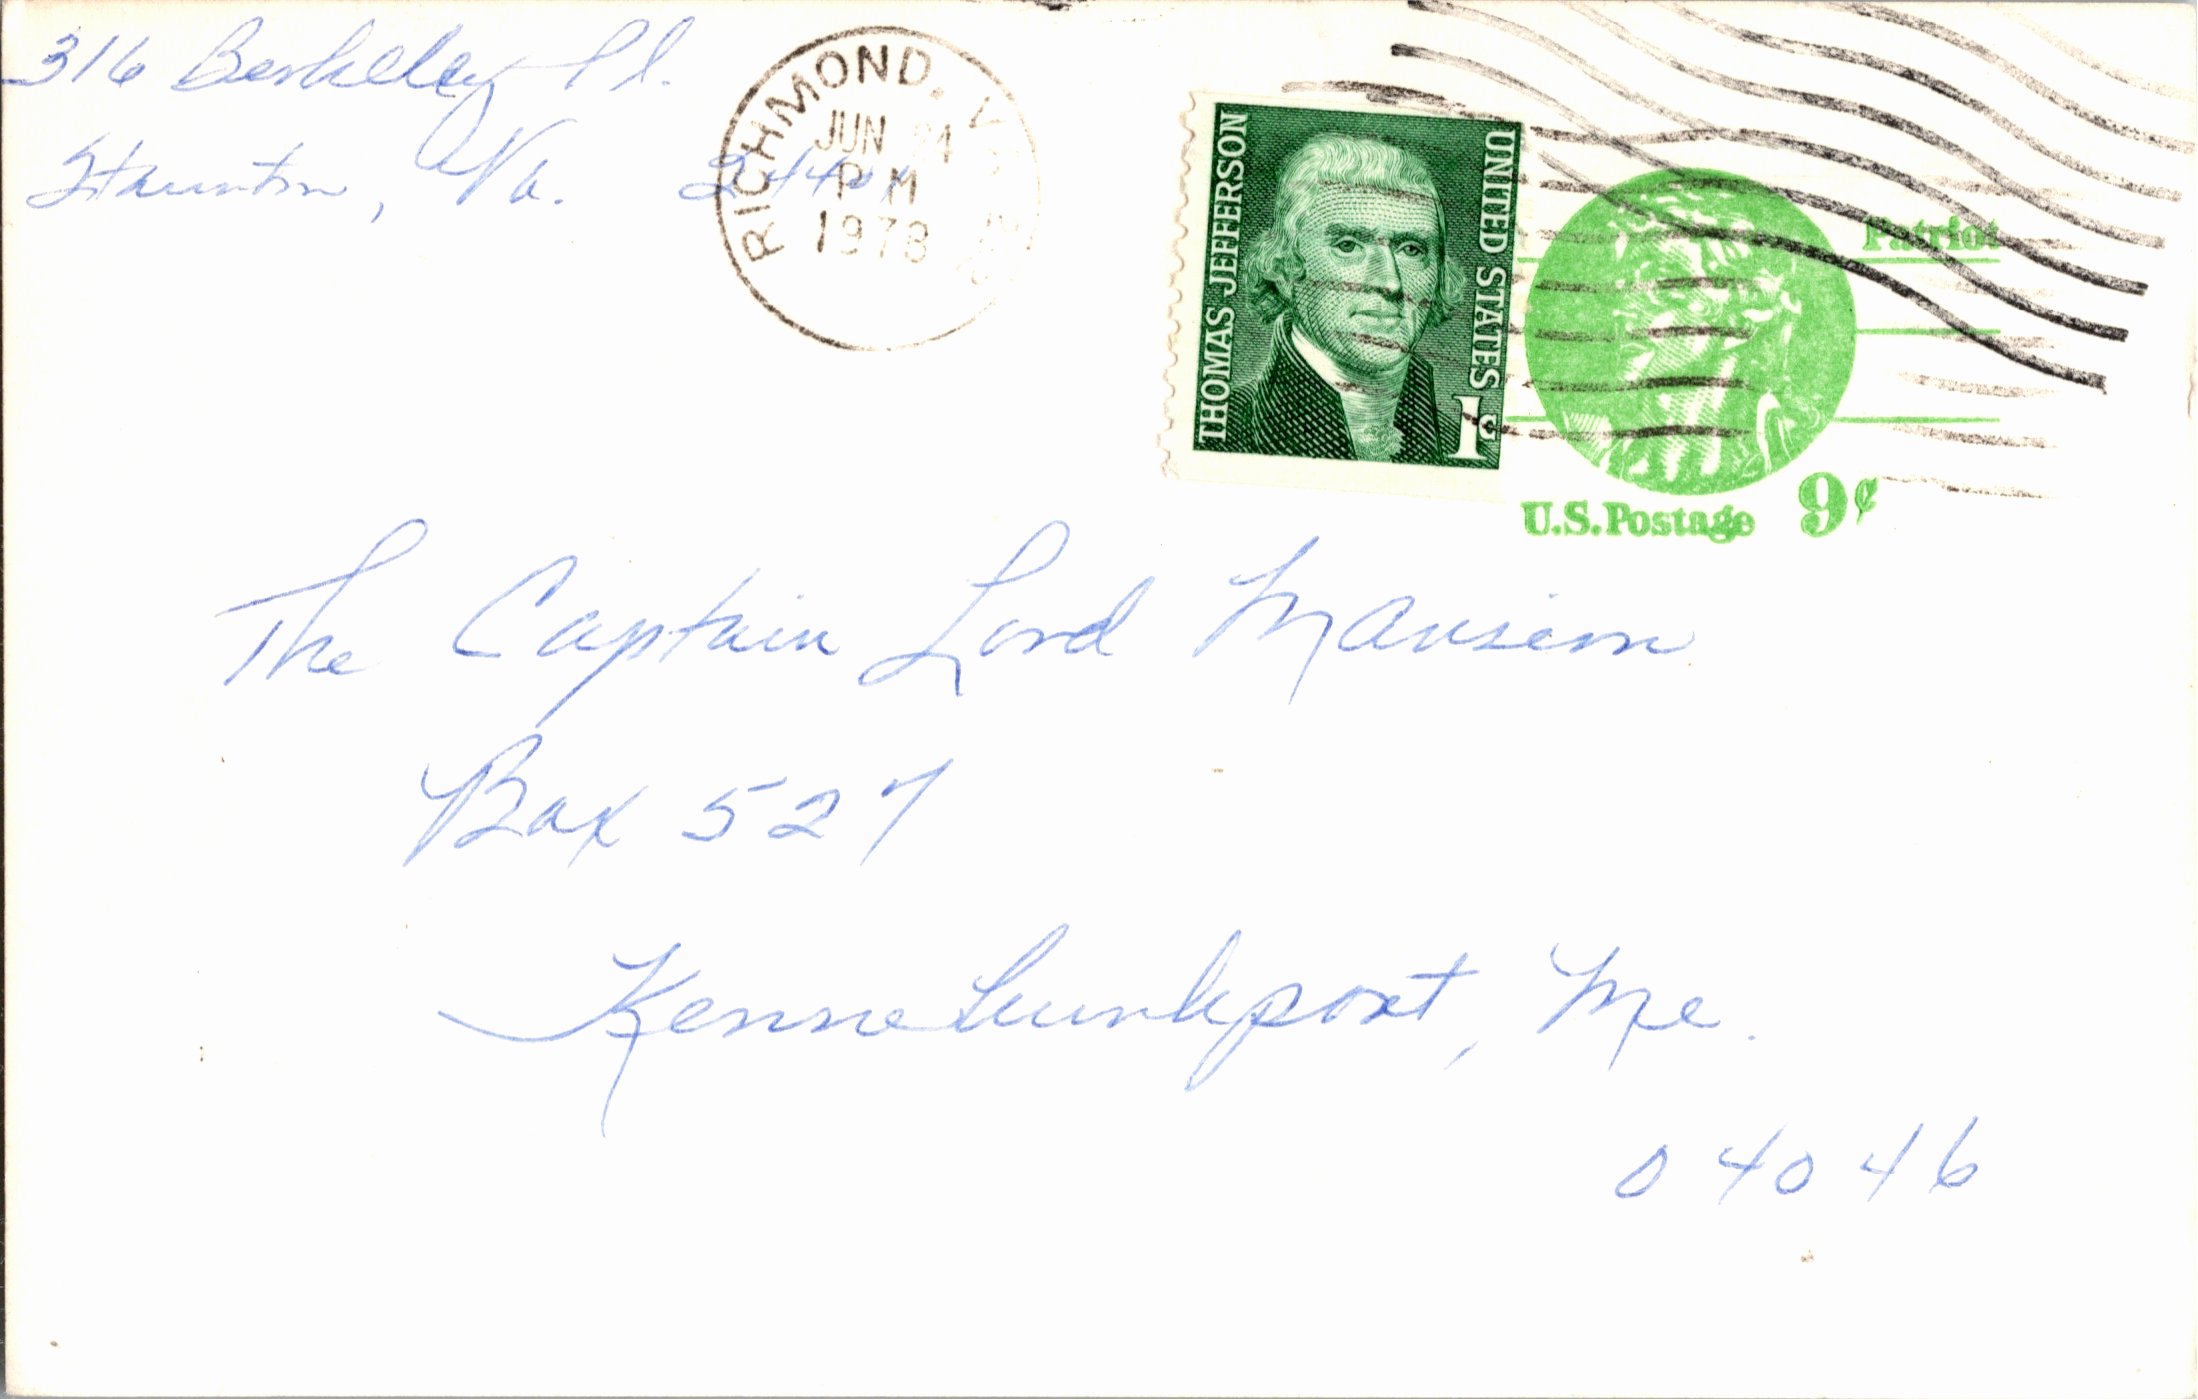 316 Berkeley Pl.
Staunton, Va. 24401
RICHMOND, VA
JUN 24
PM
1978
THOMAS JEFFERSON
UNITED STATES
1c
Patriot
U.S. Postage 9¢
The Captain Lord Mansion
Box 527
Kennebunkport, Me.
04046